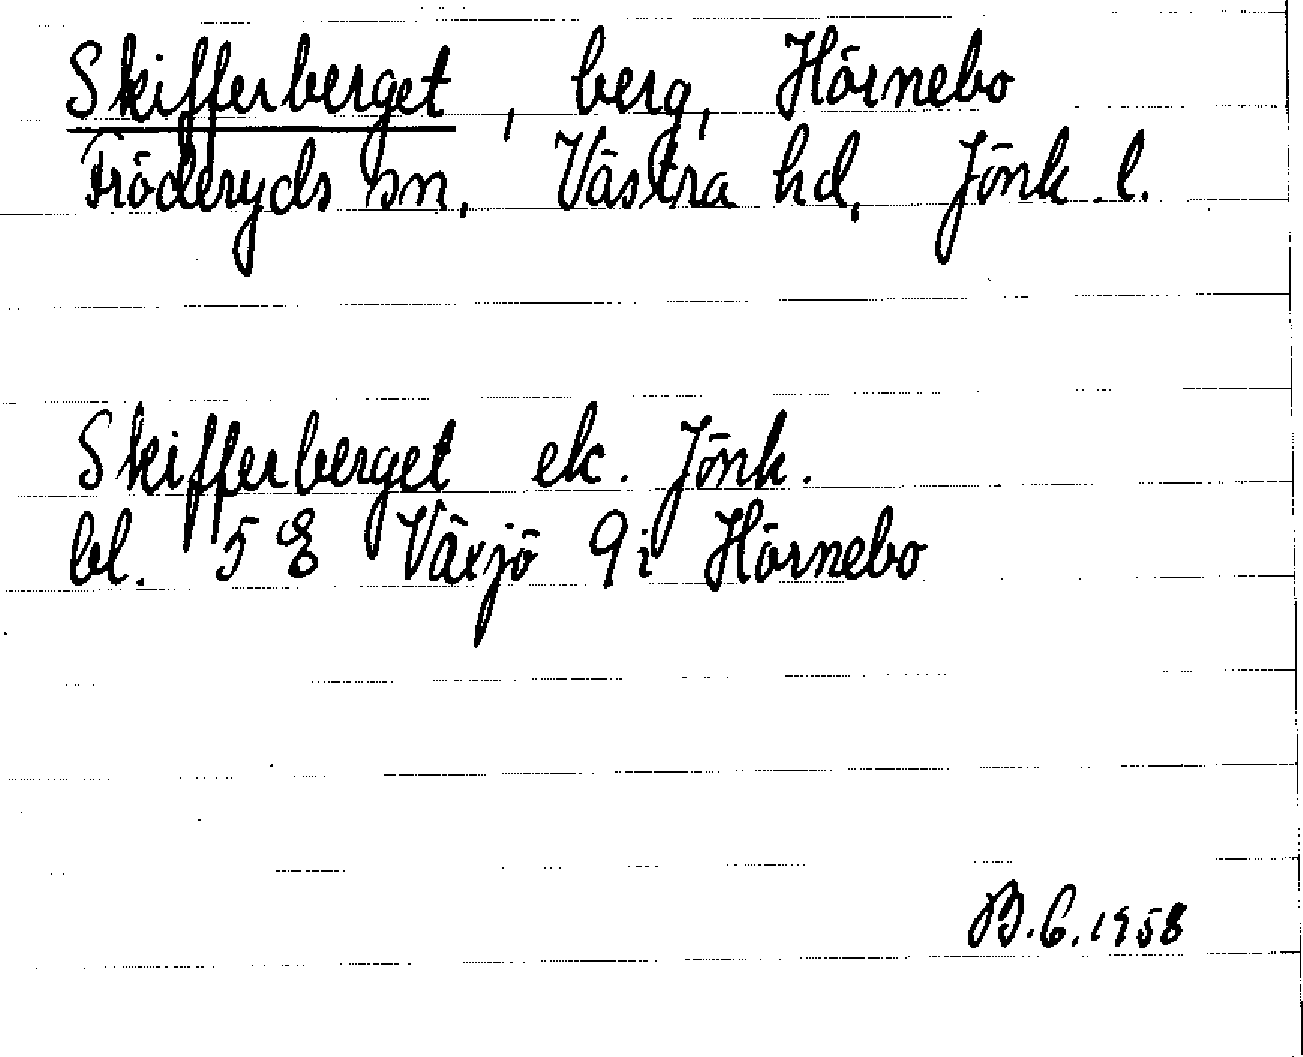 Skifferberget, berg, Hörnebo
Fröderyds sn, Västra hd, Jönk. l.
Skifferberget ek. Jönk.
bl. 5 E Växjö 9 i Hörnebo
B.C. 1958